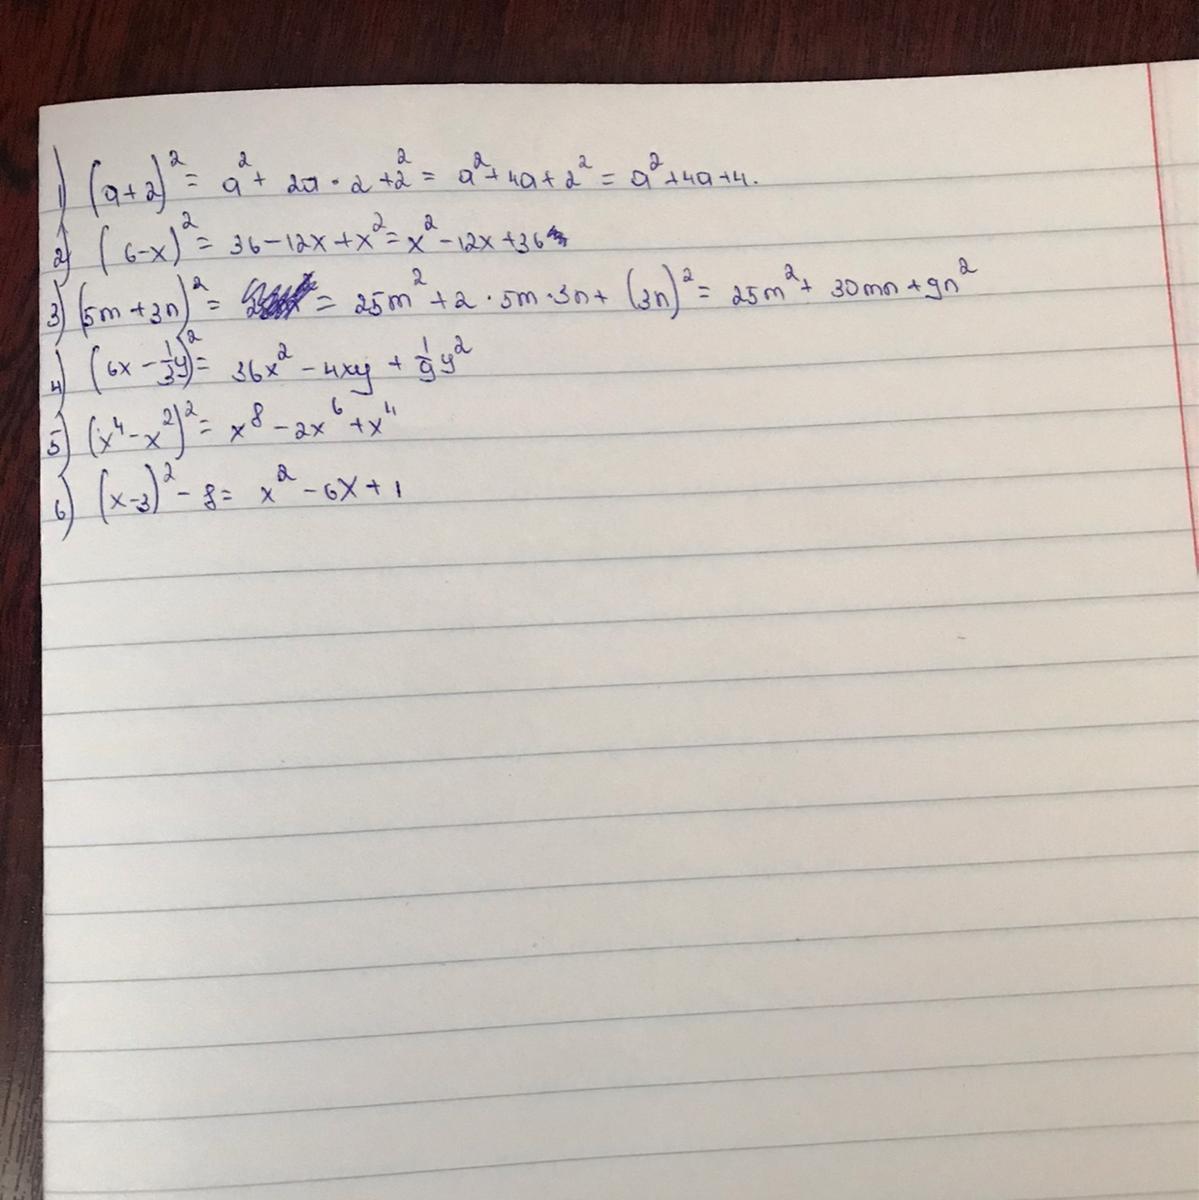 1) (a+2)² = a² + 2a · 2 + 2² = a² + 4a + 2² = a² + 4a + 4.
2) (6-x)² = 36 - 12x + x² = x² - 12x + 36
3) (5m + 3n)² = = 25m² + 2 · 5m · 3n + (3n)² = 25m² + 30mn + 9n²
4) (6x - 1/3y)² = 36x² - 4xy + 1/9y²
5) (x⁴ - x²)² = x⁸ - 2x⁶ + x⁴
6) (x-3)² - 8 = x² - 6x + 1